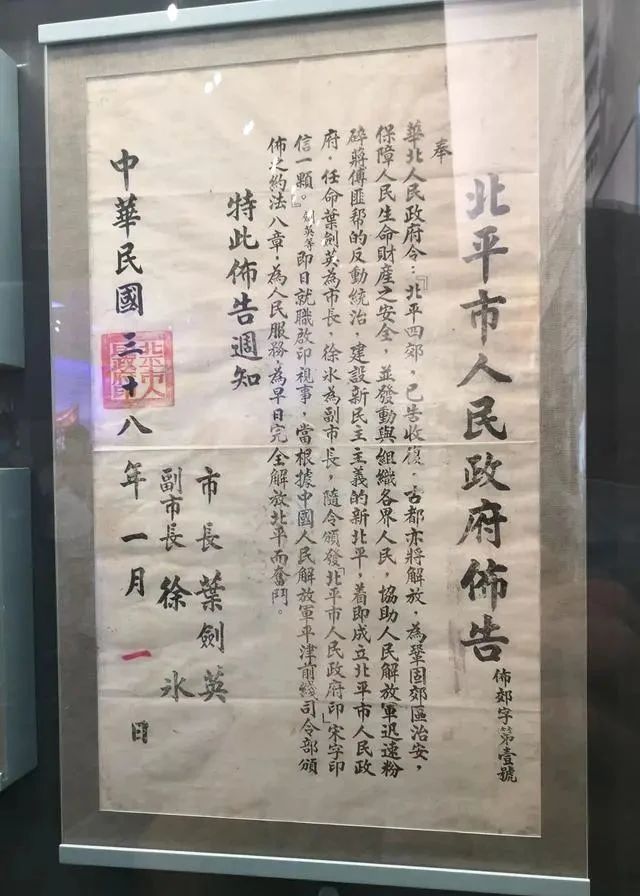 北平市人民政府佈告
佈郊字第壹號
奉
華北人民政府令：『北平四郊，已告收復，古都亦將解放，為鞏固郊區治安，
保障人民生命財產之安全，並發動與組織各界人民，協助人民解放軍迅速粉
碎蔣傅匪帮的反動統治，建設新民主主義的新北平，着即成立北平市人民政
府，任命葉劍英為市長，徐冰為副市長，隨令頒發「北平市人民政府印」宋字印
信一顆。』劍英等即日就職啟印視事，當根據中國人民解放軍平津前綫司令部頒
佈之約法八章，為人民服務，為早日完全解放北平而奮鬥。
特此佈告週知
市長 葉劍英
副市長 徐冰
中華民國三十八年一月一日
北平市人民政府印